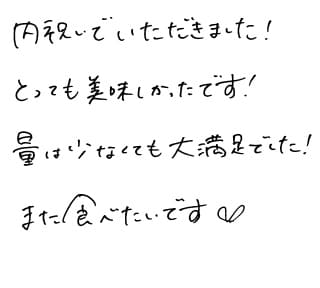 内祝いでいただきました！
とっても美味しかったです！
量は少なくても大満足でした！
また食べたいです♡